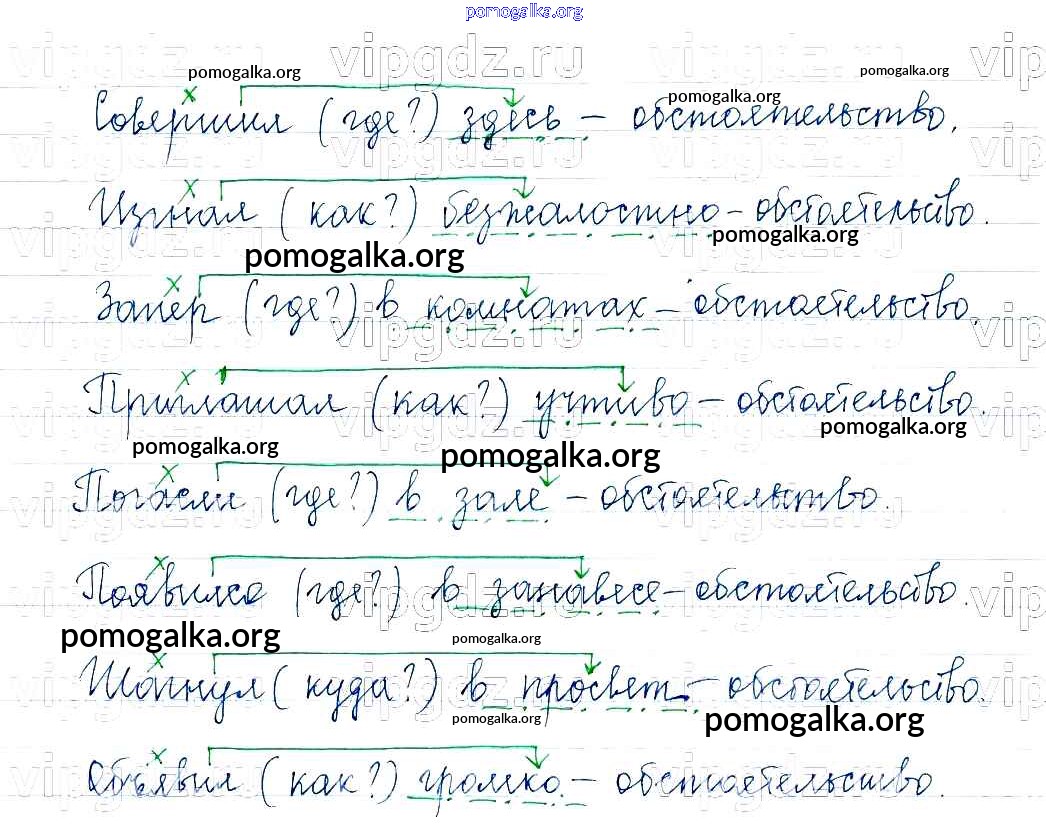 pomogalka.org
vipgdz.ru
pomogalka.org
pomogalka.org
pomogalka.org
Совершил (где?) здесь – обстоятельство.
Изгнал (как?) безжалостно – обстоятельство.
pomogalka.org
pomogalka.org
Запер (где?) в комнатах – обстоятельство.
vipgdz.ru
Приглашал (как?) учтиво – обстоятельство.
pomogalka.org
pomogalka.org
pomogalka.org
Погасли (где?) в зале – обстоятельство.
Появился (где?) в занавесе – обстоятельство.
pomogalka.org
pomogalka.org
Шагнул (куда?) в просвет – обстоятельство.
pomogalka.org
pomogalka.org
Объявил (как?) громко – обстоятельство.